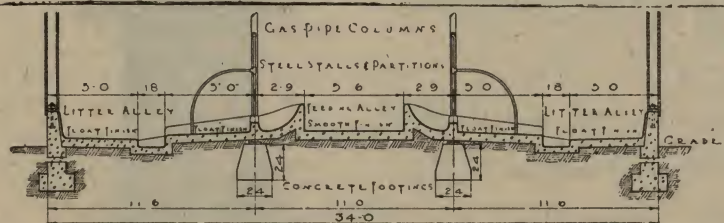 GAS PIPE COLUMNS
STEEL STALLS & PARTITIONS
5-0 18 5'0" 2-9 5 6 2-9 5 0 18 5 0
LITTER ALLEY FEEDING ALLEY LITTER ALLEY
FLOAT FINISH FLOAT FINISH SMOOTH FINISH FLOAT FINISH FLOAT FINISH
GRADE
24 24
24 CONCRETE FOOTINGS 24
11 6 11 0 11 6
34-0